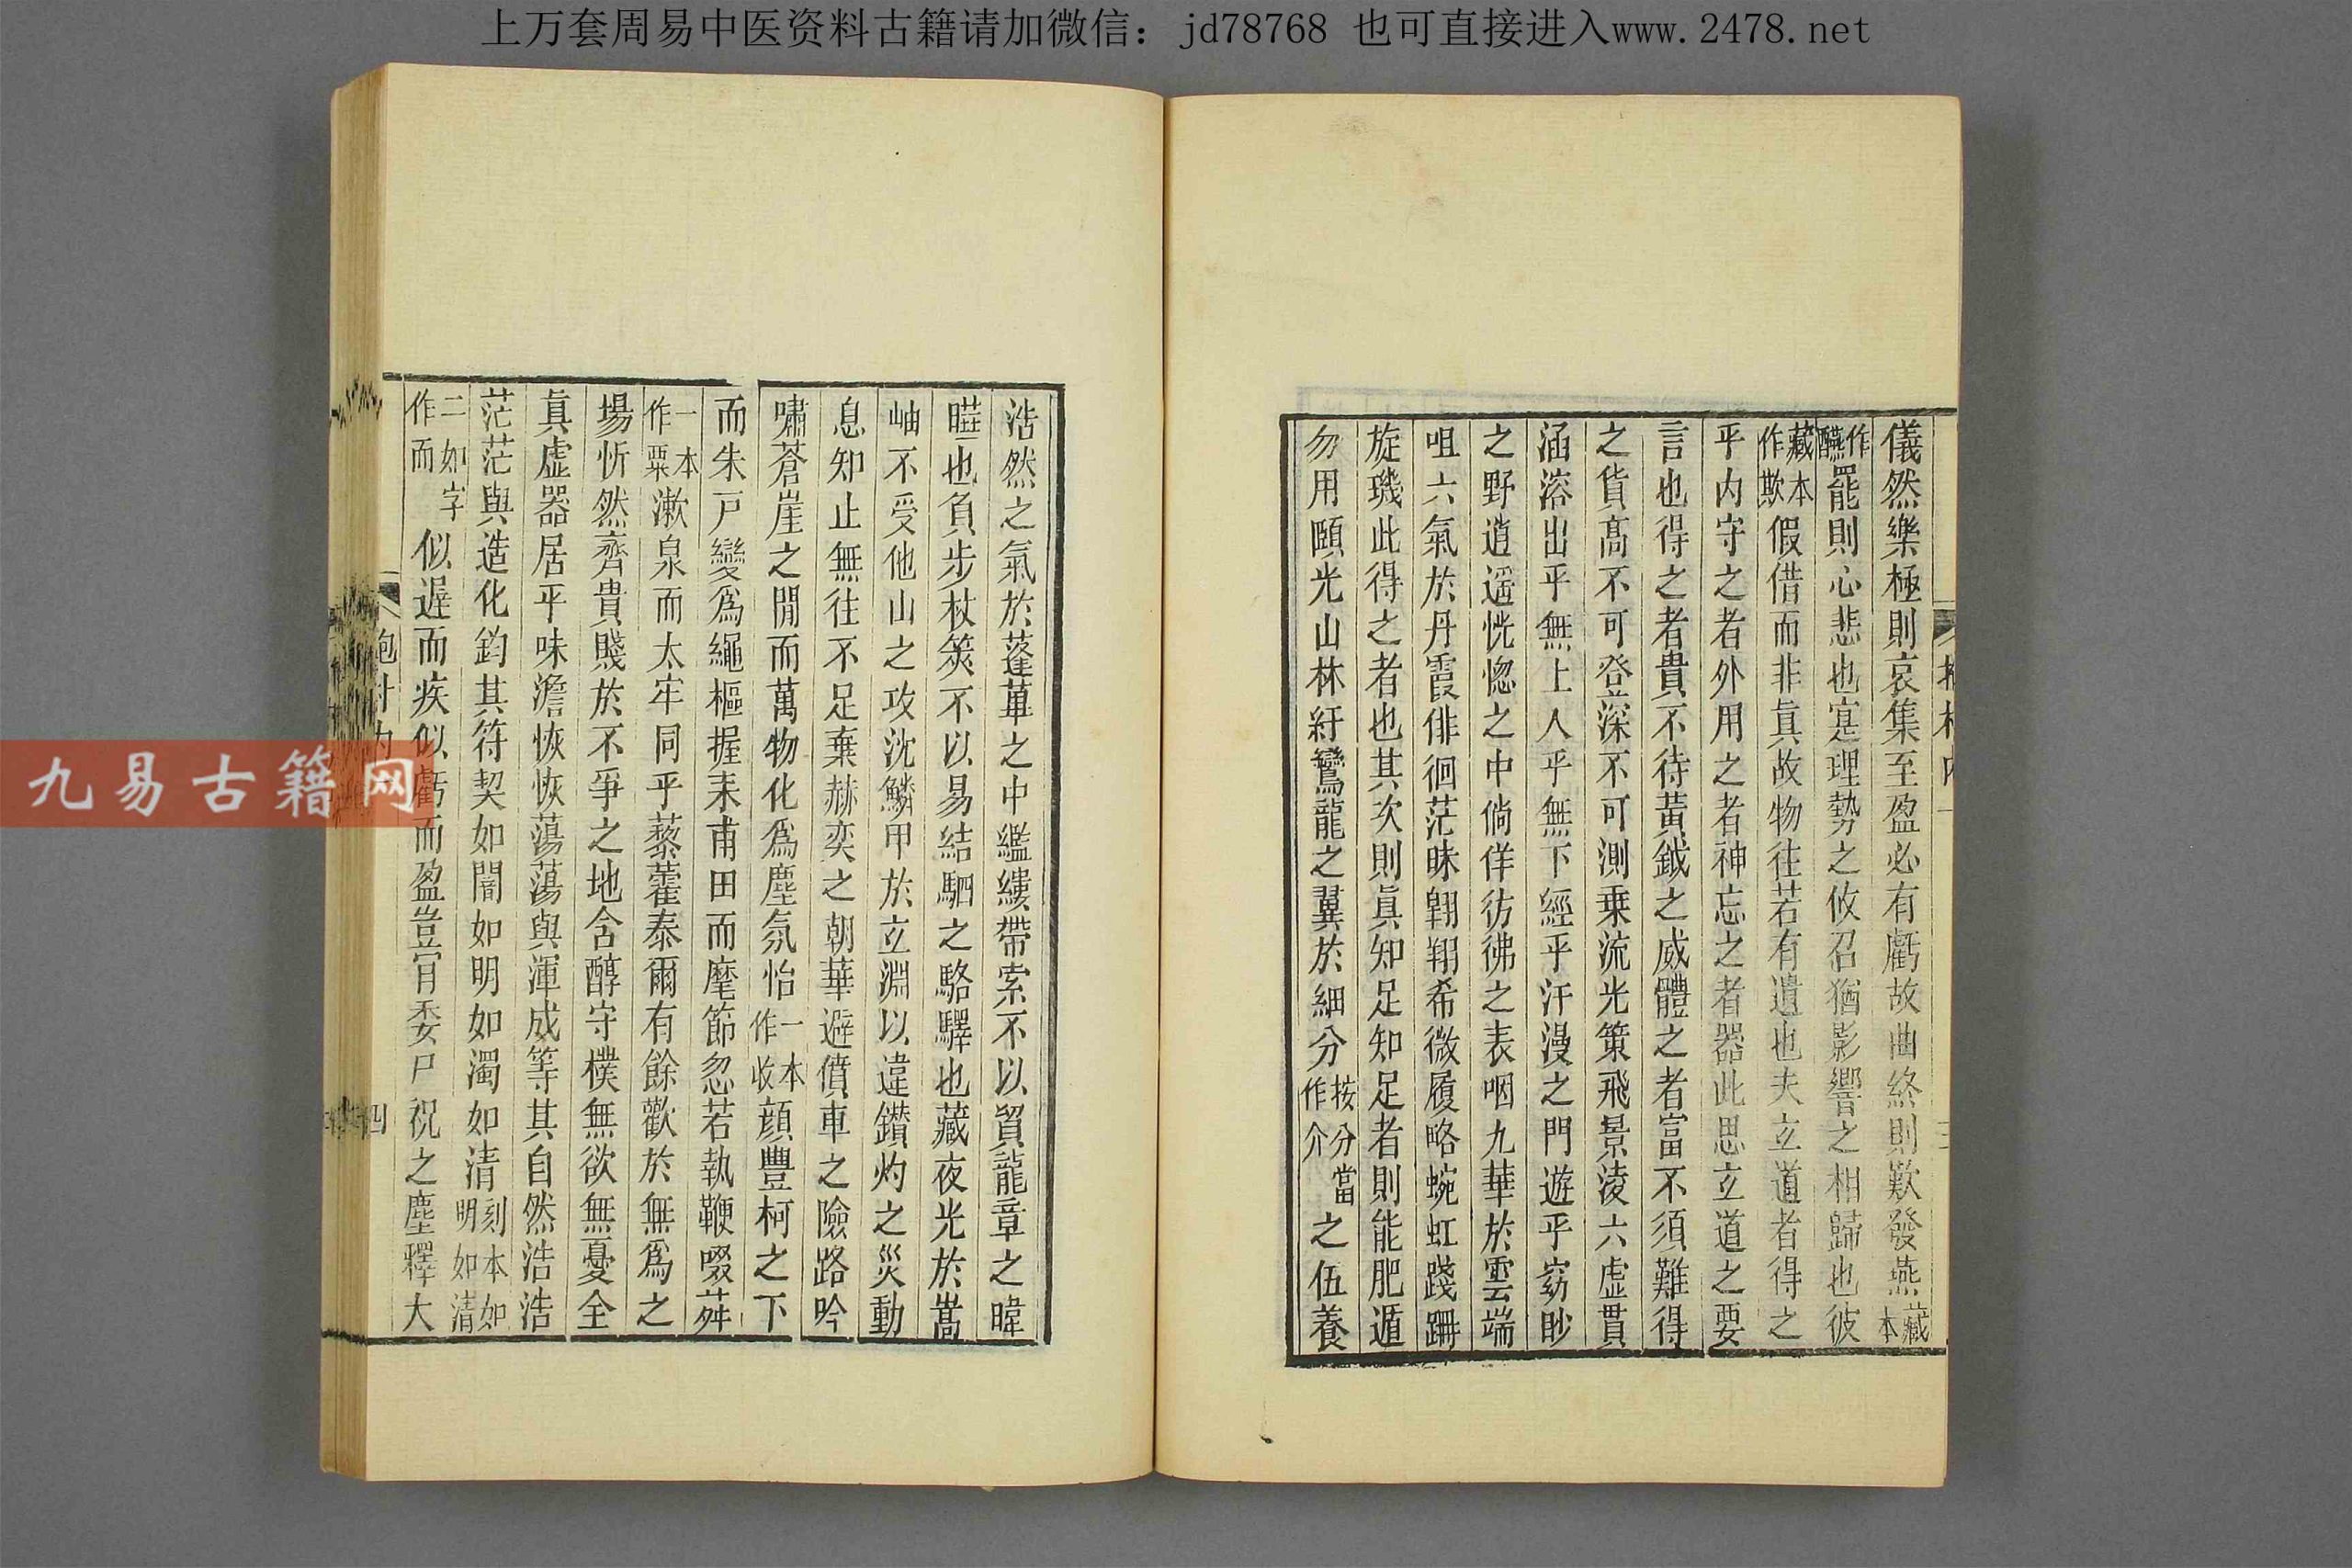 上万套周易中医资料古籍请加微信：jd78768 也可直接进入www.2478.net
儀然樂極則哀集至盈必有虧故曲終則歎發燕藏本
作醼罷則心悲也寔理勢之攸召猶影響之相歸也彼
藏本作欺假借而非眞故物往若有遺也夫立道者得之
乎内守之者外用之者神忘之者器此思立道之要
言也得之者貴不待黃鉞之威體之者富不須難得
之貨高不可登深不可測乗流光策飛景淩六虛貫
涵溶出乎無上入乎無下經乎汗漫之門遊乎窈眇
之野逍遥恍惚之中倘佯彷彿之表咽九華於雲端
咀六氣於丹霞俳徊茫昧翱翔希微履略蜿虹踐跚
旋璣此得之者也其次則眞知足知足者則能肥遁
勿用頤光山林紆鸞龍之翼於細分按分當作介之伍養
浩然之氣於蓬蓽之中繿縷帶索不以貿龍章之暐
曄也負步杖筴不以易結駟之駱驛也藏夜光於嵩
岫不受他山之攻沈鱗甲於立淵以違鑽灼之災動
息知止無往不足棄赫奕之朝華避僨車之險路吟
嘯蒼崖之閒而萬物化爲塵氛怡一本作收顏豐柯之下
而朱戸變爲繩樞握耒甫田而麾節忽若執鞭啜荈
一本作粟漱泉而太牢同乎藜藿泰爾有餘歡於無爲之
場忻然齊貴賤於不爭之地含醇守樸無欲無憂全
眞虛器居平味澹恢恢蕩蕩與渾成等其自然浩浩
茫茫與造化鈞其符契如闇如明如濁如清刻本如明如清
二如字作而似遲而疾似虧而盈豈肎委尸祝之塵釋大
四
九易古籍网